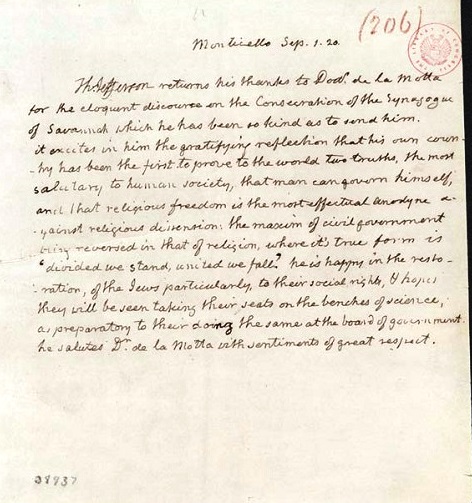 (206)
Monticello Sep. 1. 20.
Th: Jefferson returns his thanks to Doct. de la Motta
for the eloquent discourse on the Consecration of the Synagogue
of Savannah which he has been so kind as to send him.
it excites in him the gratifying reflection that his own coun-
-try has been the first to prove to the world two truths, the most
salutary to human society, that man can govern himself,
and that religious freedom is the most effectual anodyne a-
-gainst religious dissension: the maxim of civil government
being reversed in that of religion, where it's true form is
'divided we stand, united we fall.' he is happy in the resto-
-ration, of the Jews particularly, to their social rights, & hopes
they will be seen taking their seats on the benches of science,
as preparatory to their doing the same at the board of government.
he salutes Dr. de la Motta with sentiments of great respect.
38937